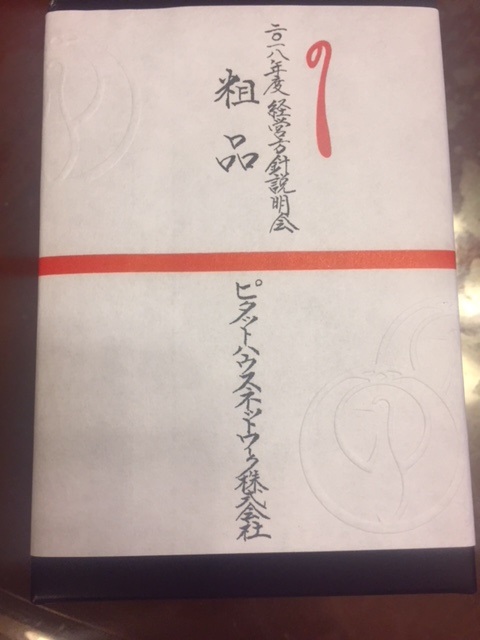 二〇一八年度 経営方針説明会
粗品
ピタットハウスネットワーク株式会社